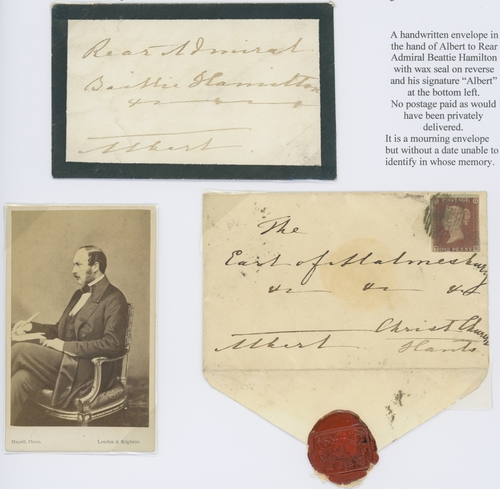 Rear Admiral
Baittie Hamilton
&c
Albert
A handwritten envelope in
the hand of Albert to Rear
Admiral Beattie Hamilton
with wax seal on reverse
and his signature “Albert”
at the bottom left.
No postage paid as would
have been privately
delivered.
It is a mourning envelope
but without a date unable to
identify in whose memory.
The
Earl of Malmesbury
&c &c &c
Christ Church
Albert Hants
POSTAGE
ONE PENNY
London & Brighton.